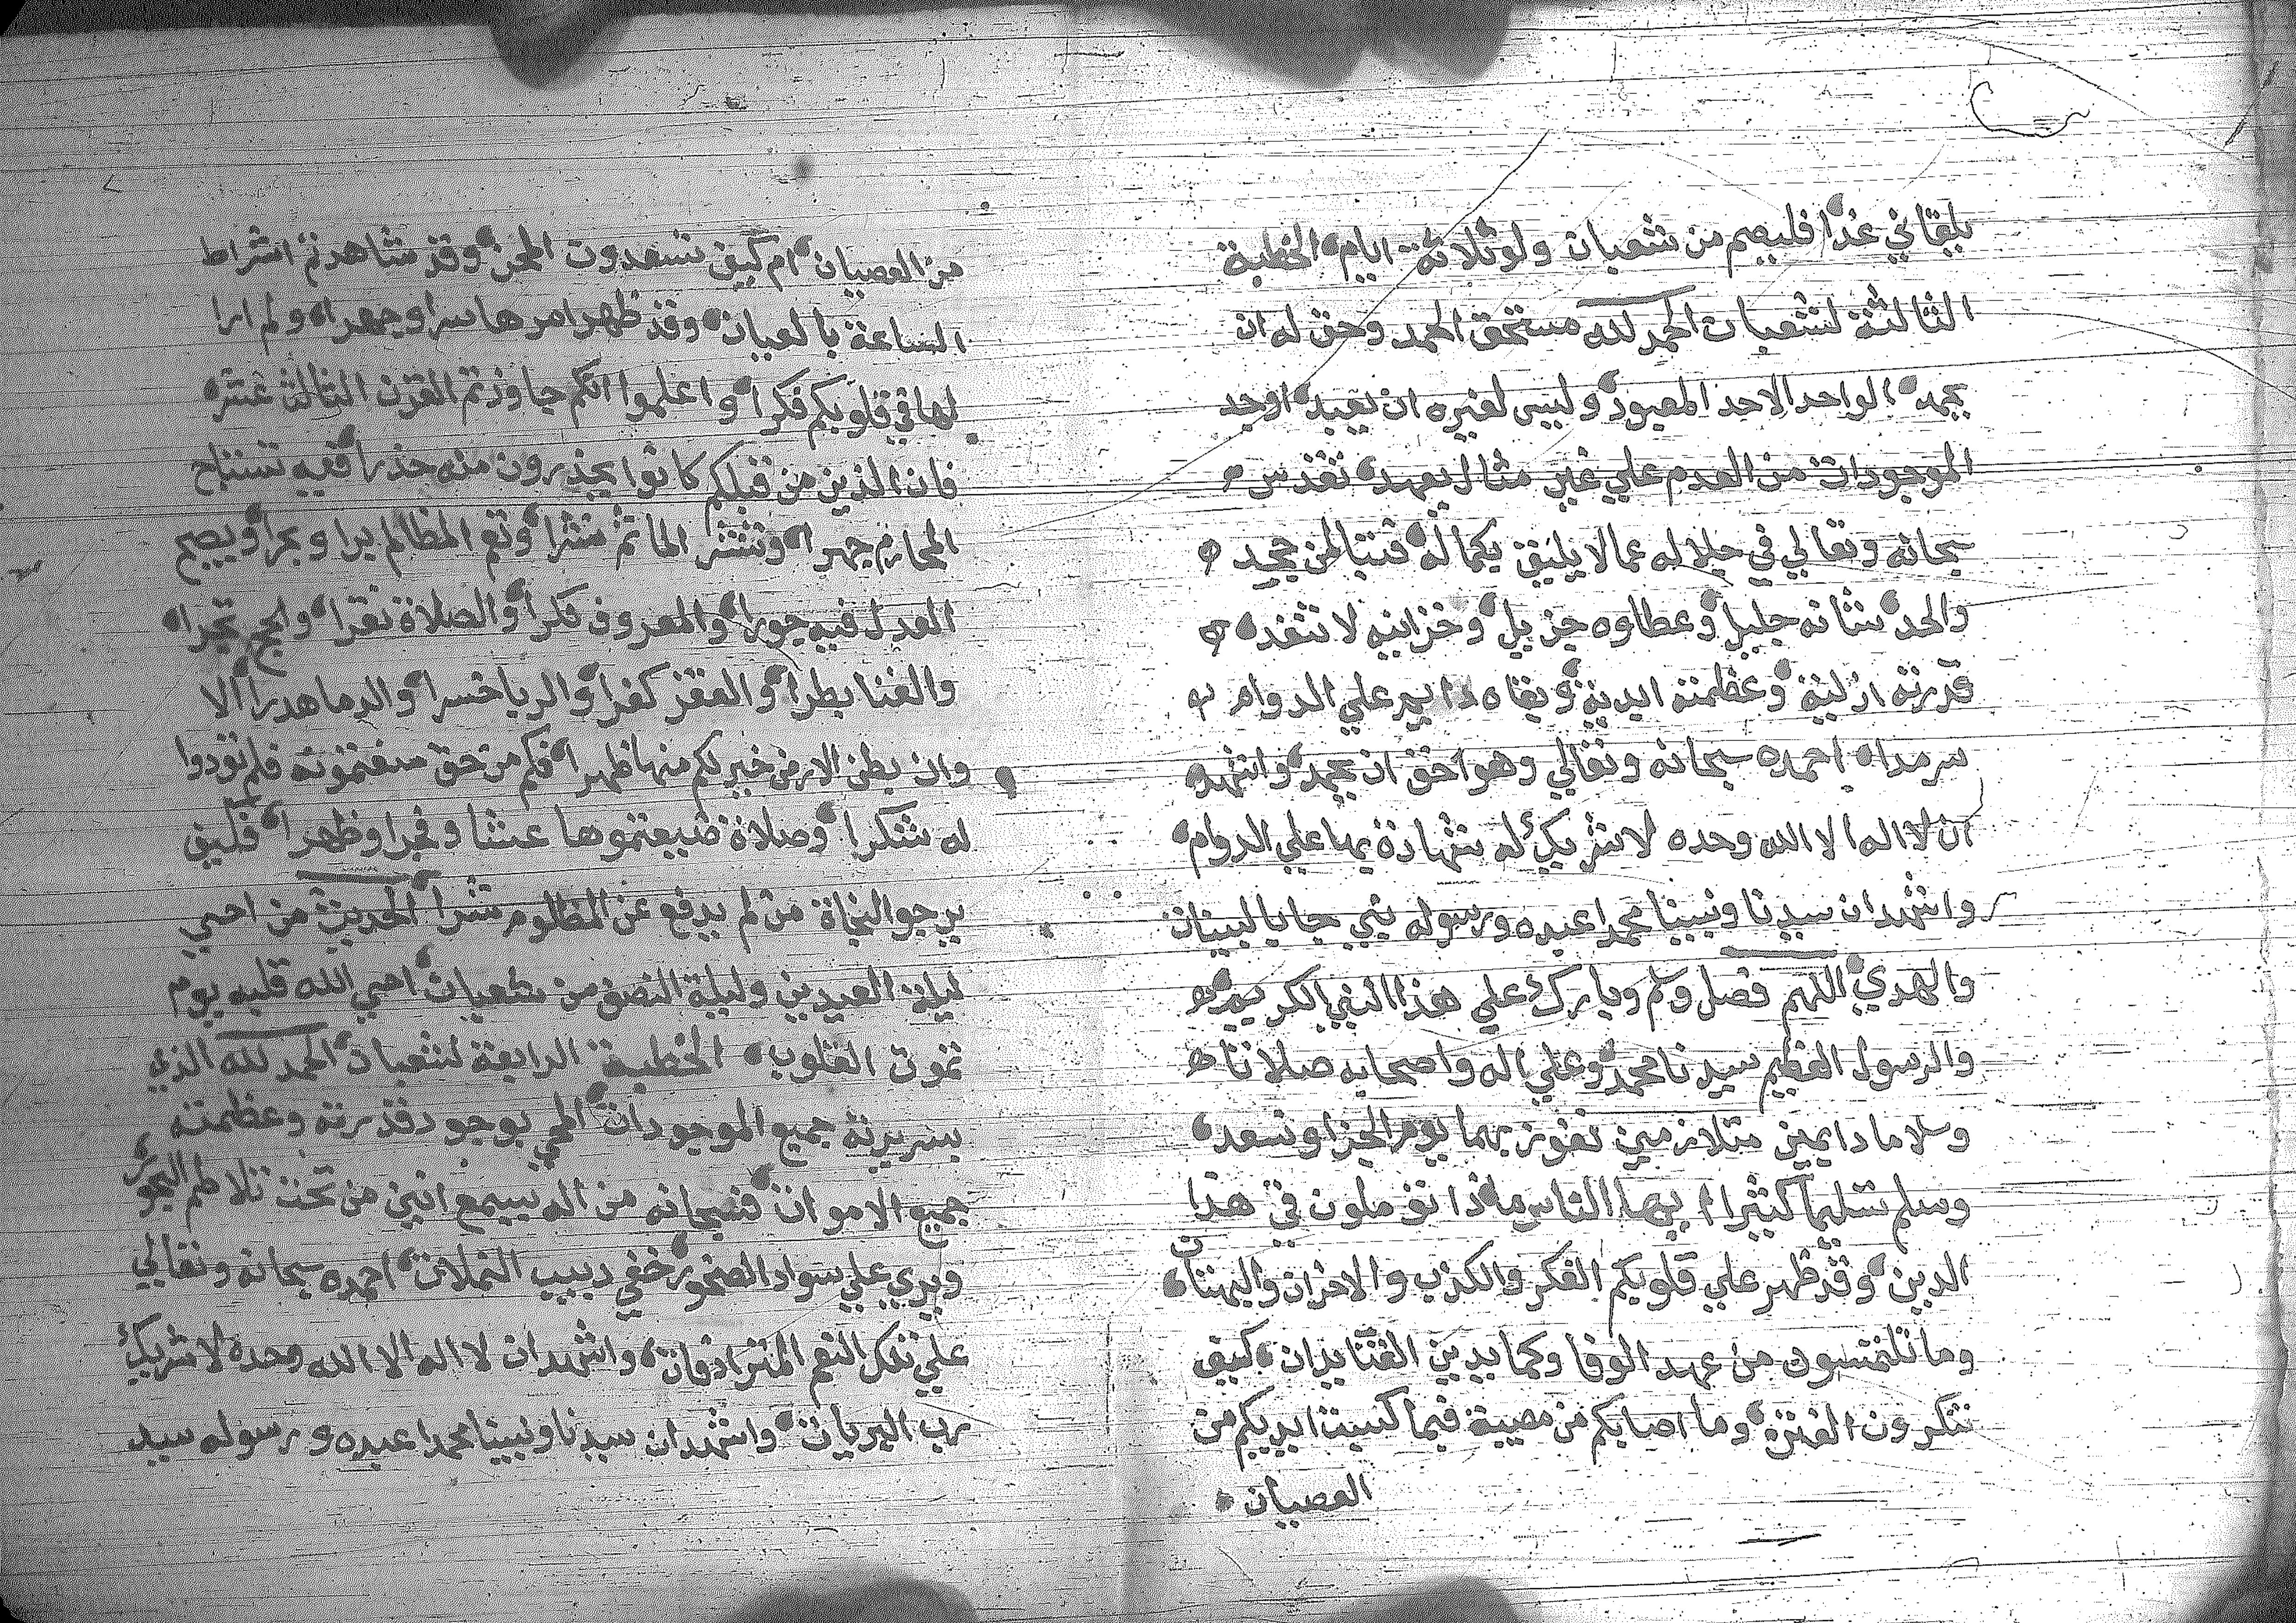 يلقاني غدا فليصم من شعبان ولو ثلاثة ايام الخطبة
الثالثة لشعبان الحمد لله مستحق الحمد وحق له ان
يحمد الواحد الاحد المعبود وليس لغيره ان يعبد اوجد
الموجودات من العدم علي غير مثال يعهد تقدس
سبحانه وتعالي في جلاله عما لا يليق بكماله فتبا لمن جحد
والحد شانه جليل وعطاوه جزيل وخزاينه لا تنفد
قدرته ازلية وعظمته ابدية وبقاه دايم علي الدوام
سرمدا احمده سبحانه وتعالي وهو احق ان يحمد واشهد
ان لا اله الا الله وحده لا شريك له شهادة بها علي الدوام
واشهد ان سيدنا ونبينا محمدا عبده ورسوله نبي جا بالبينات
والهدي اللهم فصل وسلم وبارك علي هذا النبي الكريم
والرسول العظيم سيدنا محمد وعلي اله واصحابه صلاتا
وسلاما دايمين متلازمين نفوز بهما يوم الجزا ونسعد
وسلم تسليما كثيرا ايها الناس ماذا توملون في هذا
الدين وقد ظهر علي قلوبكم الفكر والكذب والاحزان والبهتان
وما تلتمسون من عهد الوفا وكما يدين الفتا يدان كيف
تنكرون الفترة وما اصابكم من مصيبة فيما كسبت ايديكم من
العصيان
من العصيان ام كيف تستعدون المحن وقد شاهدتم اشراط
الساعة بالعيان وقد ظهر امرها سرا وجهرا ولم ارا
لها في قلوبكم فكرا واعلموا انكم جاوزتم القرن الثالث عشر
فان الذين من قبلكم كانوا يحذرون منه حذرا ففيه تستباح
المحارم جهرا وتنشر الماتم نشرا وتعم المظالم برا وبحرا ويصبح
العدل فيه جورا والمعروف نكرا والصلاة نقرا والحج تجرا
والغنا بطرا والفقر كفرا والربا خسرا والدما هدرا الا
وان بطن الارض خير لكم منها ظهرا فكم من حق منعتموته فلم تودوا
له شكرا وصلاة ضيعتموها عشا وفجرا وظهرا فكيف
يرجو النجاة من لم يدفع عن المظلوم شرا الحديث من احيي
ليلة العيدين وليلة النصف من شعبان احيي الله قلبه يوم
تموت القلوب الخطبة الرابعة لشعبان الحمد لله الذي
جميع الموجودات المحي بوجود قدرته وعظمته
جميع الاموات فسبحانه من اله يسمع انين من تحت تلاطم البحور
ويري علي سواد الصخور خفي دبيب النملات احمده سبحانه وتعالي
علي تفكر النعم المترادفات واشهد ان لا اله الا الله وحده لا شريك
رب البريات واشهد ان سيدنا ونبينا محمدا عبده ورسوله سيد